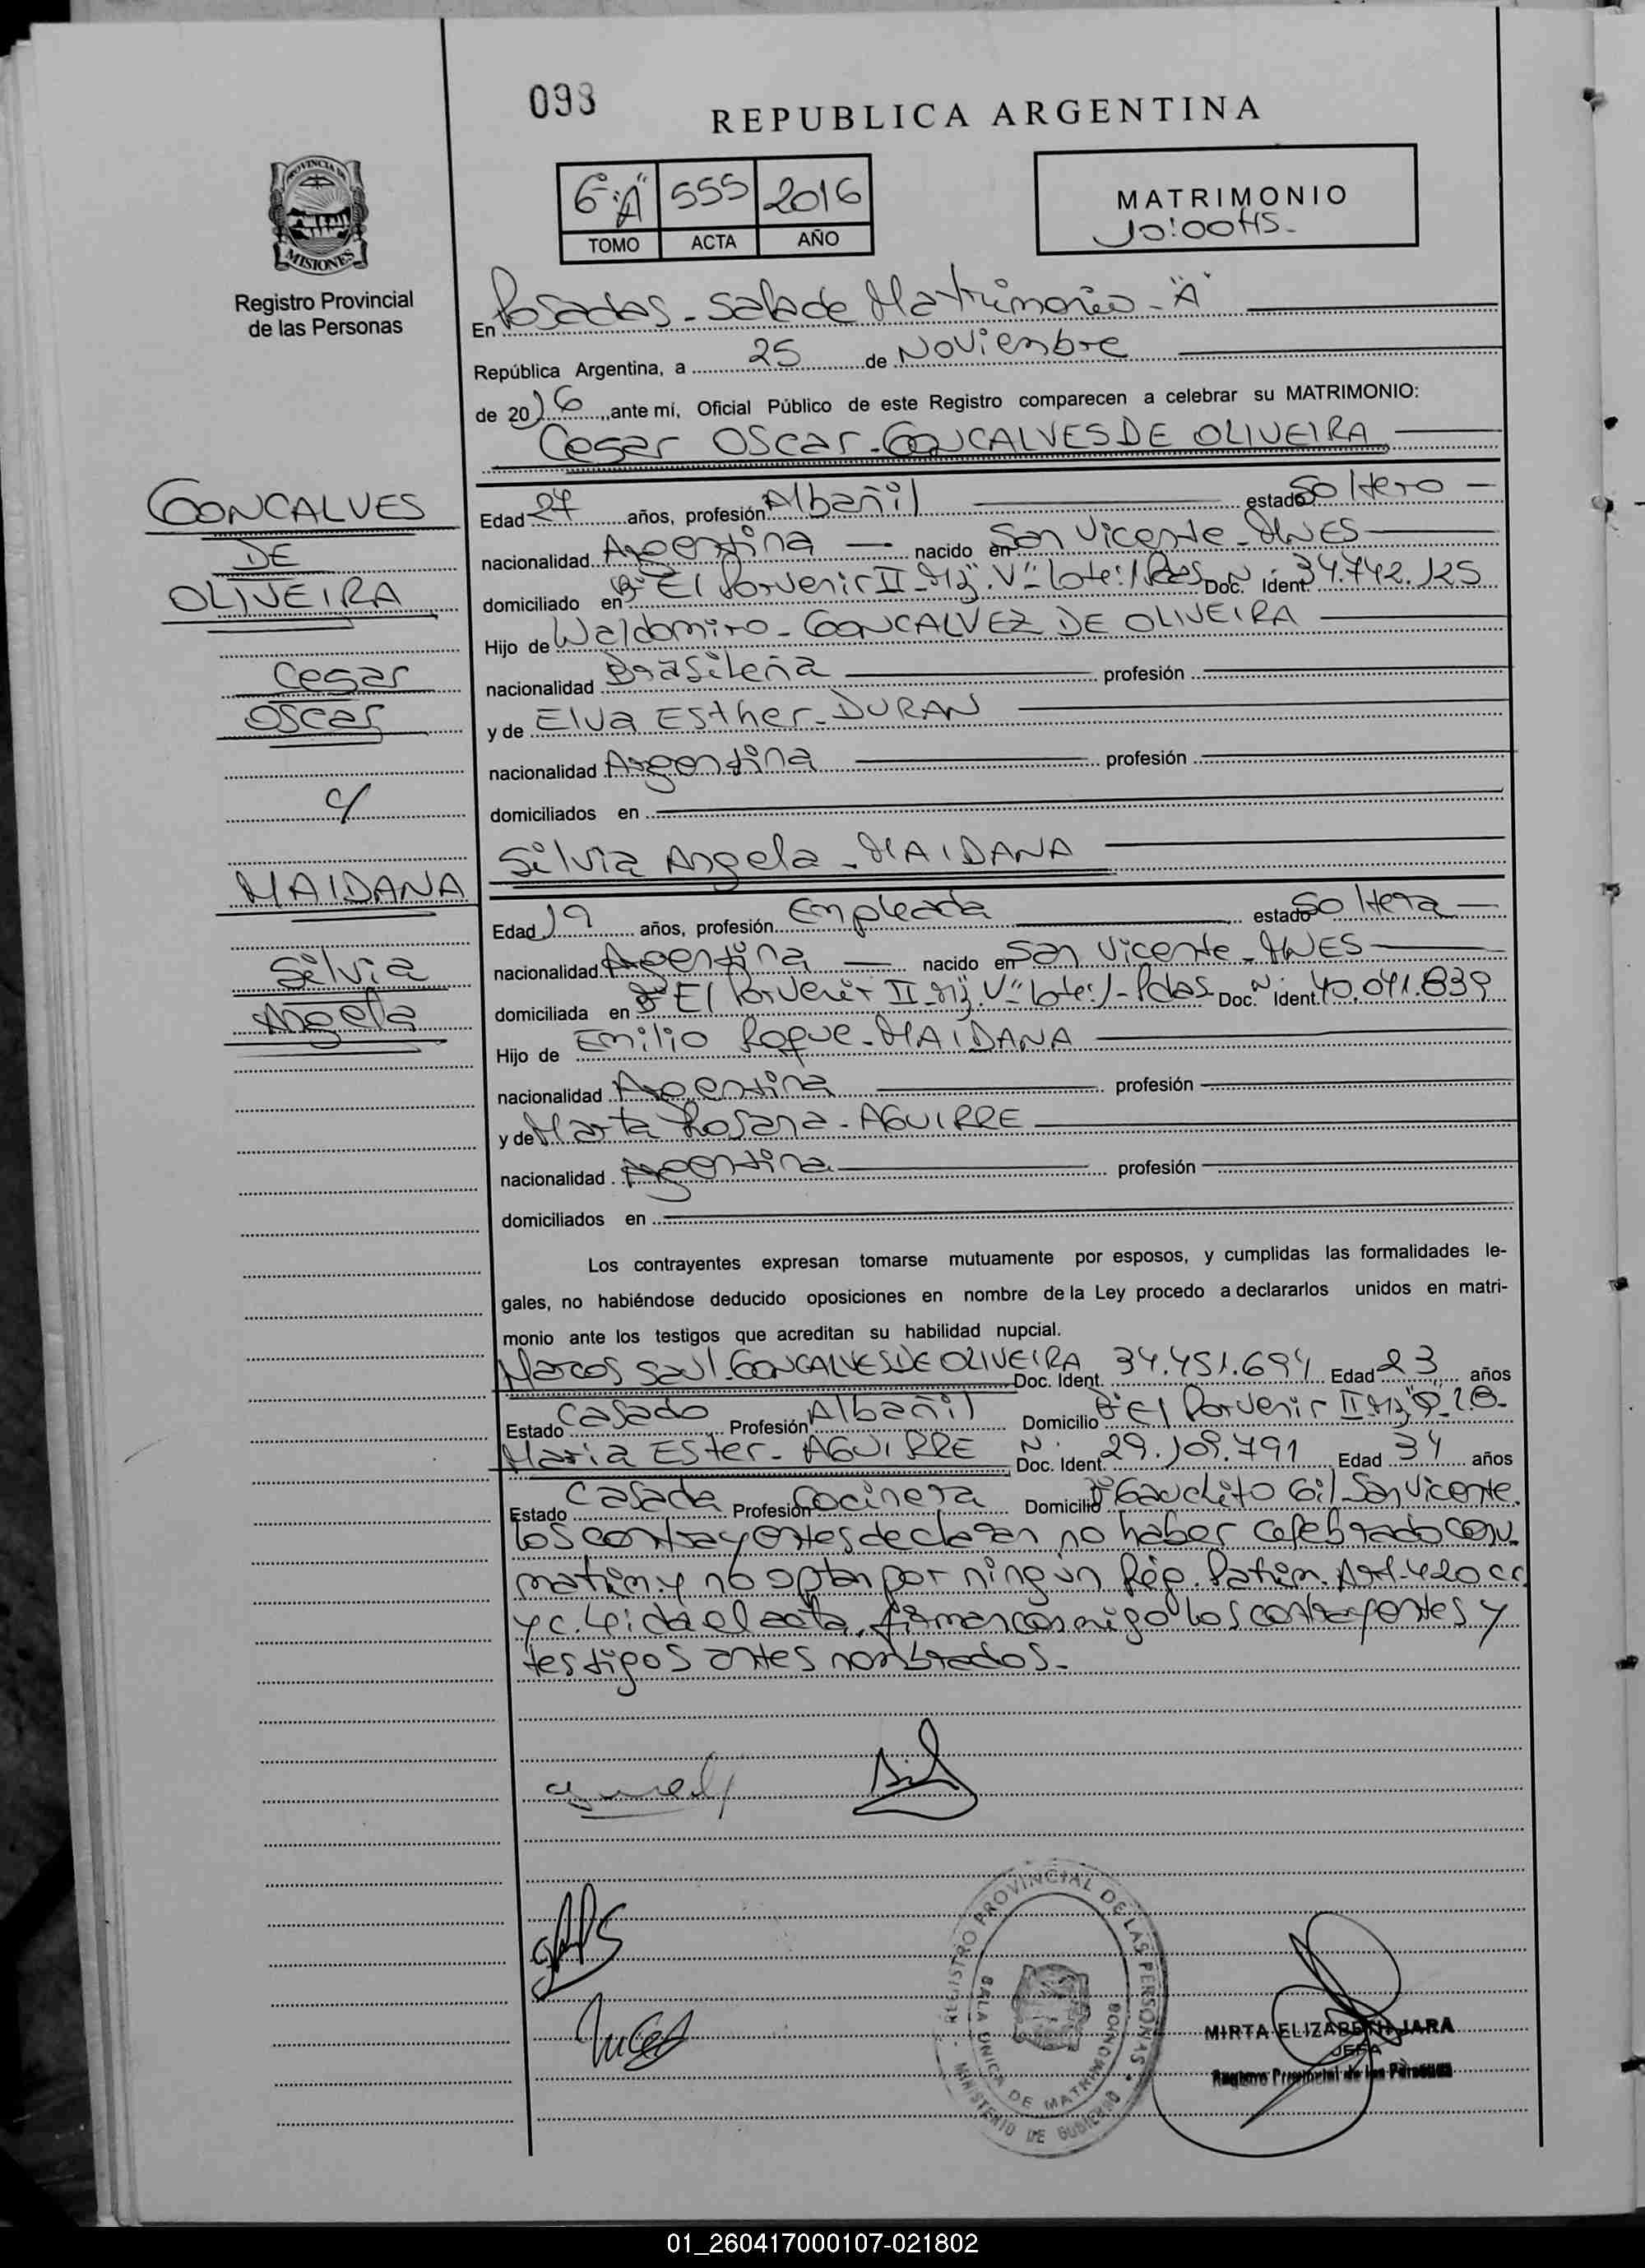 093
REPUBLICA ARGENTINA
PROVINCIA DE
MISIONES
Registro Provincial
de las Personas
6 "A" 555 2016
TOMO ACTA AÑO
MATRIMONIO
10:00HS-
En Posadas - Sala de Matrimonio - "A"
República Argentina, a 25 de Noviembre
de 2016, ante mí, Oficial Público de este Registro comparecen a celebrar su MATRIMONIO:
Cesar Oscar - GONCALVES DE OLIVEIRA
GONCALVES
DE
OLIVEIRA
Cesar
Oscar
c/
MAIDANA
Silvia
Angela
Edad 27 años, profesión Albañil estado Soltero -
nacionalidad Argentina - nacido en San Vicente - MNES
domiciliado en Bº El Porvenir II - Mz. "V" Lote: 1 Pdas Doc. Ident. Nº 34.742.125
Hijo de Waldomiro - GONCALVEZ DE OLIVEIRA
nacionalidad Brasileña profesión
y de Elva Esther - DURAN
nacionalidad Argentina profesión
domiciliados en
Silvia Angela - MAIDANA
Edad 19 años, profesión Empleada estado Soltera -
nacionalidad Argentina - nacido en San Vicente - MNES
domiciliada en Bº El Porvenir II - Mz. "V" Lote: 1 - Pdas - Doc. Ident. Nº 40.041.839
Hijo de Emilio Roque - MAIDANA
nacionalidad Argentina profesión
y de Marta Rosana - AGUIRRE
nacionalidad Argentina profesión
domiciliados en
Los contrayentes expresan tomarse mutuamente por esposos, y cumplidas las formalidades le-
gales, no habiéndose deducido oposiciones en nombre de la Ley procedo a declararlos unidos en matri-
monio ante los testigos que acreditan su habilidad nupcial.
Marcos Saul - GONCALVES DE OLIVEIRA Doc. Ident. 34.451.694 Edad 23 años
Estado Casado Profesión Albañil Domicilio Bº El Porvenir II Mz
Maria Ester - AGUIRRE Doc. Ident. Nº 29.109.791 Edad 34 años
Estado Casada Profesión Cocinera Domicilio Bº Gauchito Gil - San Vicente.
Los contrayentes declaran no haber celebrado conv.
matrim. y no optan por ningún Rég. Patrim. Art. 420 cc
y c. Leida el acta, firman conmigo los contrayentes y
testigos antes nombrados.-
REGISTRO PROVINCIAL DE LAS PERSONAS
SALA UNICA DE MATRIMONIOS
MINISTERIO DE GOBIERNO
MIRTA ELIZABETH JARA
JEFA
Registro Provincial de las Personas
01_260417000107-021802